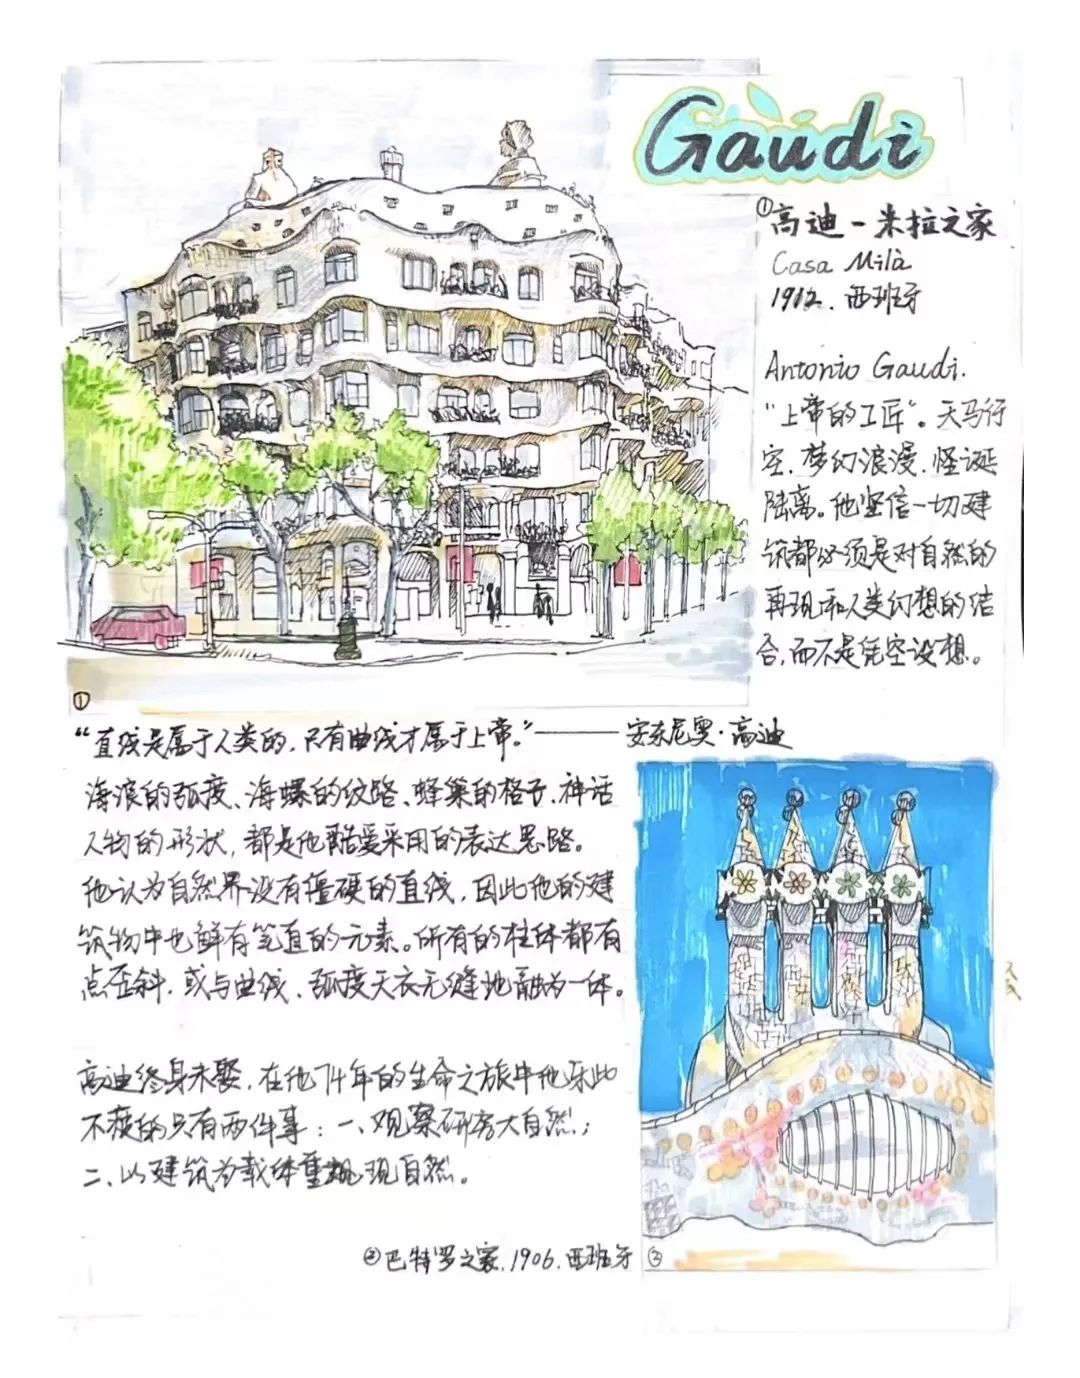 Gaudi
①高迪-米拉之家
Casa Milà
1912.西班牙
Antonio Gaudi.
"上帝的工匠"。天马行
空、梦幻浪漫、怪诞
陆离。他坚信一切建
筑都必须是对自然的
再现和人类幻想的结
合,而不是凭空设想。
①
"直线是属于人类的,只有曲线才属于上帝。"——安东尼奥·高迪
海浪的弧度、海螺的纹路、蜂巢的格子、神话
人物的形状,都是他酷爱采用的表达思路。
他认为自然界没有僵硬的直线,因此他的建
筑物中也鲜有笔直的元素。所有的柱体都有
点歪斜,或与曲线、弧度天衣无缝地融为一体。
高迪终身未娶,在他74年的生命之旅中他乐此
不疲的只有两件事:一、观察研究大自然;
二、以建筑为载体重现自然。
②巴特罗之家.1906.西班牙
②